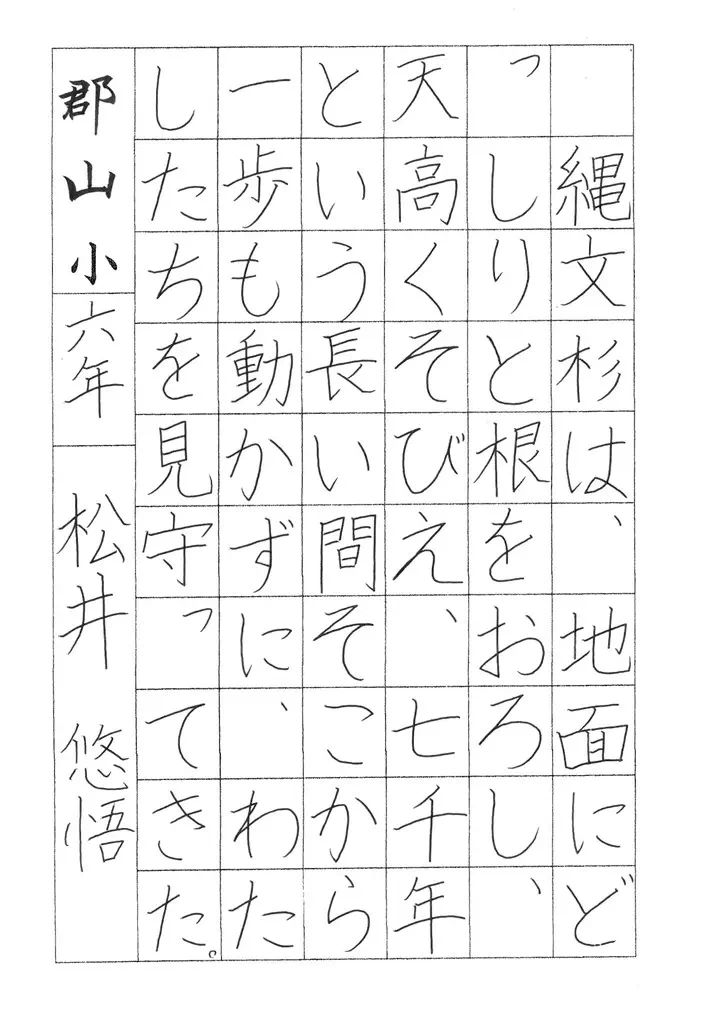 縄文杉は、地面にど
っしりと根をおろし、
天高くそびえ、七千年
という長い間そこから
一歩も動かずに、わた
したちを見守ってきた。
郡山小 六年 松井 悠悟